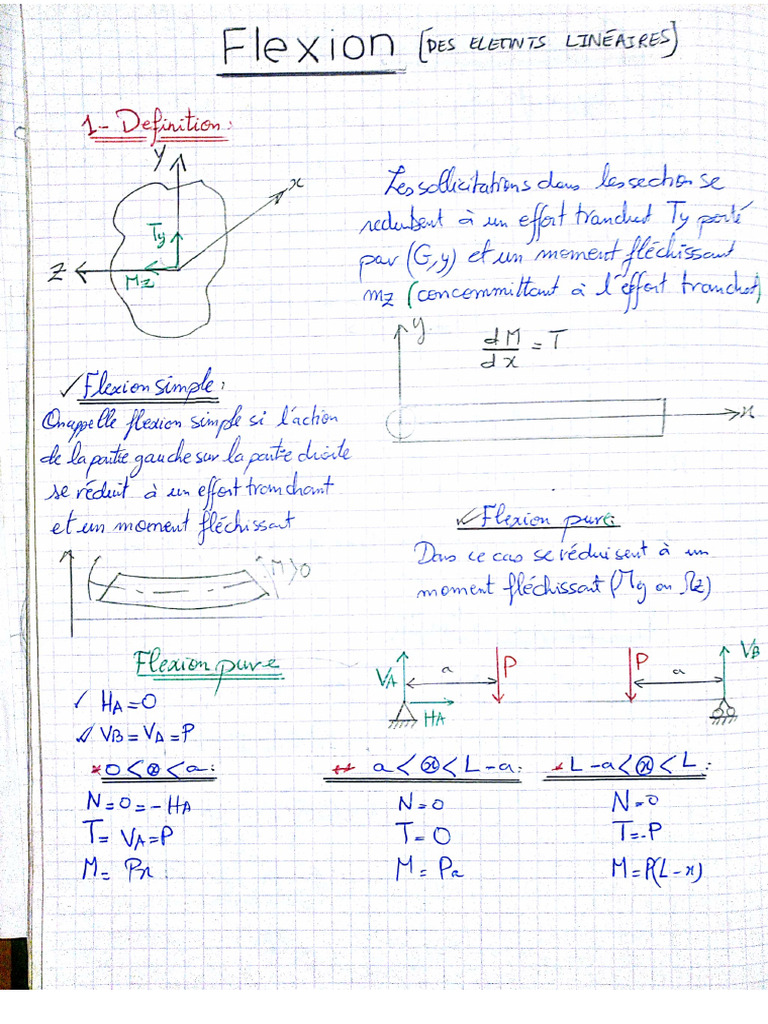 Flexion [DES ELETINTS LINÉAIRES]
1- Definition:
y
x
Ty
Z
Mz
Les sollicitations dans les section se
reduisent à un effort tranchant Ty porté
par (G,y) et un moment fléchissant
mz (concommittant à l'effort tranchant)
y
dM/dx = T
x
✓ Flexion simple:
On appelle flexion simple si l'action
de la partie gauche sur la partie droite
se réduit à un effort tranchant
et un moment fléchissant
M>0
✓ Flexion pure:
Dans ce cas se réduisent à un
moment fléchissant (My ou Mz)
Flexion pure
✓ HA=0
✓ VB=VA=P
VA a P P a VB
HA
* 0<x<a:
N=0=-HA
T=VA=P
M= Px
** a<x<L-a:
N=0
T=0
M=Pa
* L-a<x<L:
N=0
T=-P
M=P(L-x)